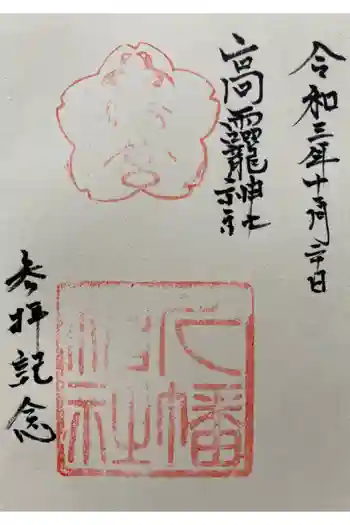 令和三年十一月二十日
高靇神社
参拝記念
八幡
神社